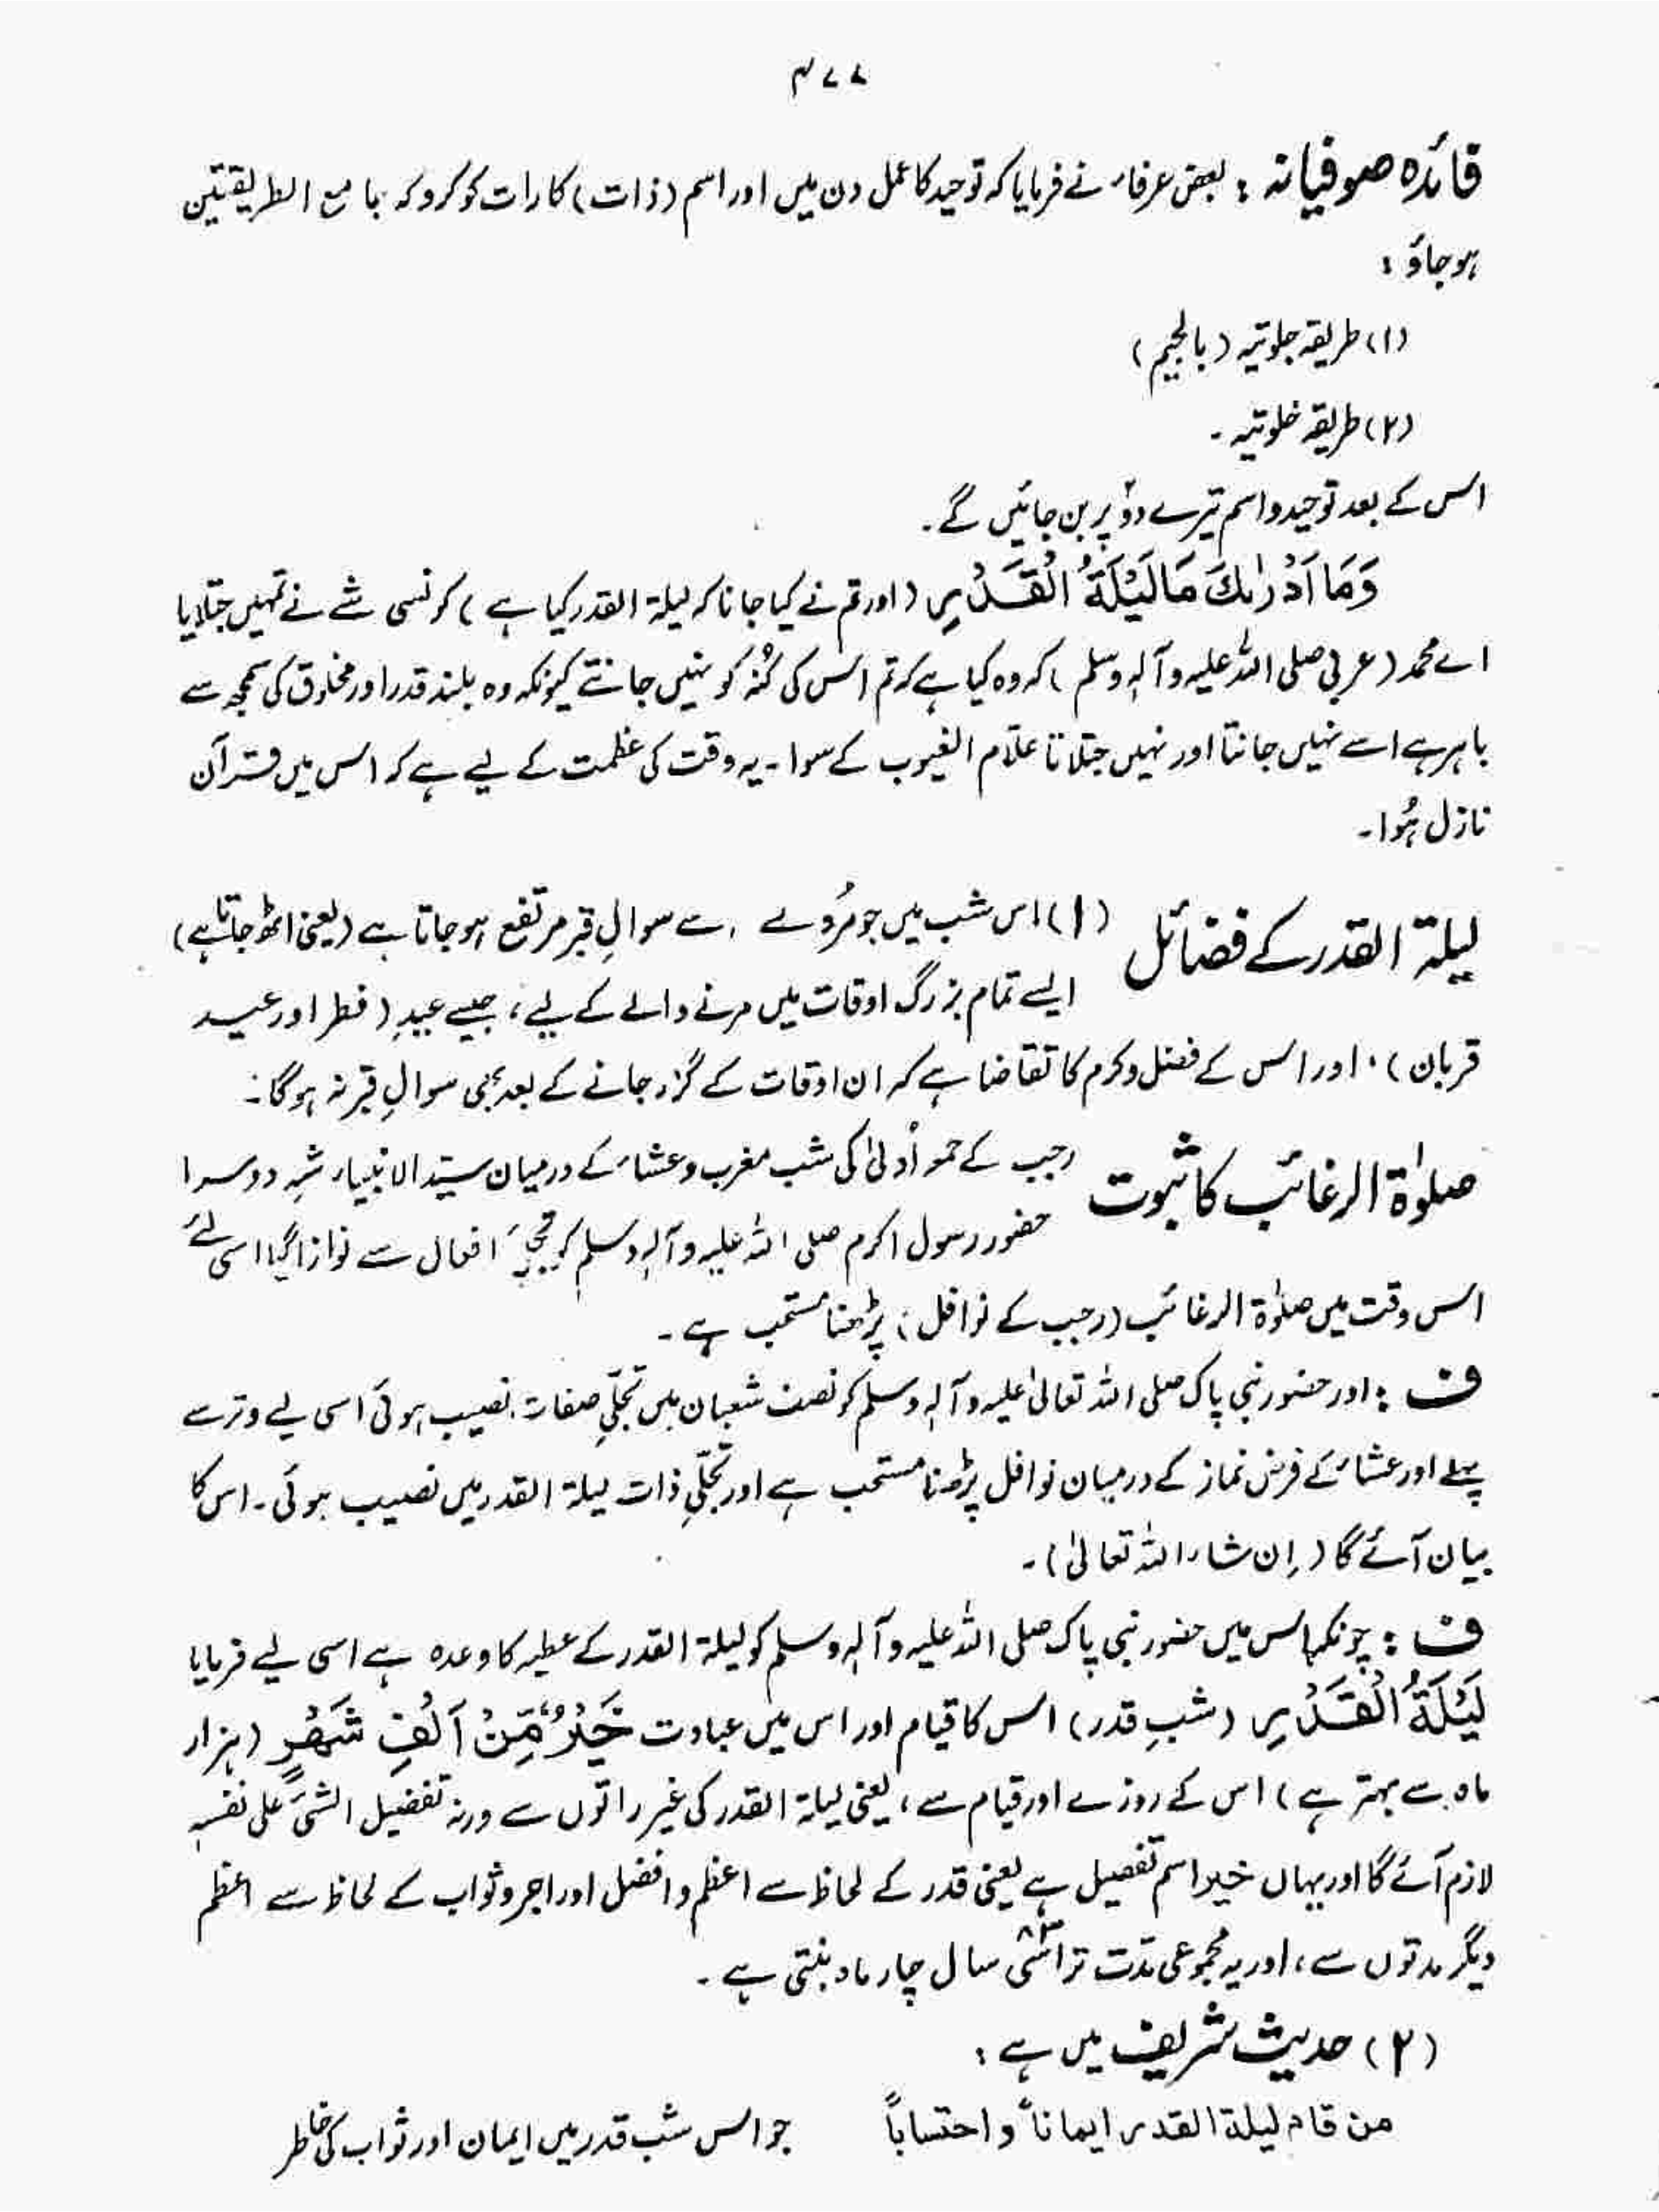 ۴۷۷
فائدہ صوفیانہ : بعض عرفاء نے فرمایا کہ توحید کا عمل دن میں اور اسم (ذات) کا رات کو کرو کہ جامع الطریقتین
ہو جاؤ :
(۱) طریقہ جلوتیہ (بالجیم)
(۲) طریقہ خلوتیہ ۔
اس کے بعد توحید و اسم تیرے دو پر بن جائیں گے ۔
وَمَا اَدْرٰىكَ مَا لَيْلَةُ الْقَدْرِ (اور تم نے کیا جانا کہ لیلۃ القدر کیا ہے) کونسی شے نے تمہیں جتلایا
اے محمد (عربی صلی اللہ علیہ وآلہٖ وسلم) کہ وہ کیا ہے کہ تم اس کی کُنہ کو نہیں جانتے کیونکہ وہ بلند قدر اور مخلوق کی سمجھ سے
باہر ہے اسے نہیں جانتا اور نہیں جتلاتا علّام الغیوب کے سوا ۔ یہ وقت کی عظمت کے لیے ہے کہ اس میں قرآن
نازل ہُوا ۔
لیلۃ القدر کے فضائل (۱) اس شب میں جو مرُے سے سوالِ قبر مرتفع ہو جاتا ہے (یعنی اٹھ جاتا ہے)
ایسے تمام بزرگ اوقات میں مرنے والے کے لیے ، جیسے عیدِ (فطر اور عید
قربان) ، اور اس کے فضل و کرم کا تقاضا ہے کہ ان اوقات کے گزر جانے کے بعد بھی سوالِ قبر نہ ہوگا ۔
صلوٰۃ الرغائب کا ثبوت رجب کے جمعہ اُولیٰ کی شب مغرب و عشاء کے درمیان سیّد الانبیاء شہِ دوسرا
حضور رسول اکرم صلی اللہ علیہ وآلہٖ وسلم کو تجلیِ افعال سے نوازا گیا اسی لئے
اس وقت میں صلوٰۃ الرغائب (رجب کے نوافل) پڑھنا مستحب ہے ۔
ف : اور حضور نبی پاک صلی اللہ تعالیٰ علیہ وآلہٖ وسلم کو نصف شعبان میں تجلّیِ صفات نصیب ہوئی اسی لیے وتر سے
پہلے اور عشاء کے فرض نماز کے درمیان نوافل پڑھنا مستحب ہے اور تجلّیِ ذات لیلۃ القدر میں نصیب ہوئی ۔ اس کا
بیان آئے گا (اِن شاء اللہ تعالیٰ) ۔
ف : چونکہ اس میں حضور نبی پاک صلی اللہ علیہ وآلہٖ وسلم کو لیلۃ القدر کے عطیہ کا وعدہ ہے اسی لیے فرمایا
لَيْلَةُ الْقَدْرِ (شبِ قدر) اس کا قیام اور اس میں عبادت خَيْرٌ مِّنْ اَلْفِ شَهْرٍ (ہزار
ماہ سے بہتر ہے) اس کے روزے اور قیام سے ، یعنی لیلۃ القدر کی غیر راتوں سے ورنہ تفضیل الشئ علی نفسہٖ
لازم آئے گا اور یہاں خیر اسم تفصیل ہے یعنی قدر کے لحاظ سے اعظم و افضل اور اجر و ثواب کے لحاظ سے اعظم
دیگر مدتوں سے ، اور یہ مجموعی مدّت تراسّی ۸۳ سال چار ماہ بنتی ہے ۔
(۲) حدیث شریف میں ہے :
من قام لیلۃ القدر ایماناً و احتساباً جو اس شب قدر میں ایمان اور ثواب کی خاطر